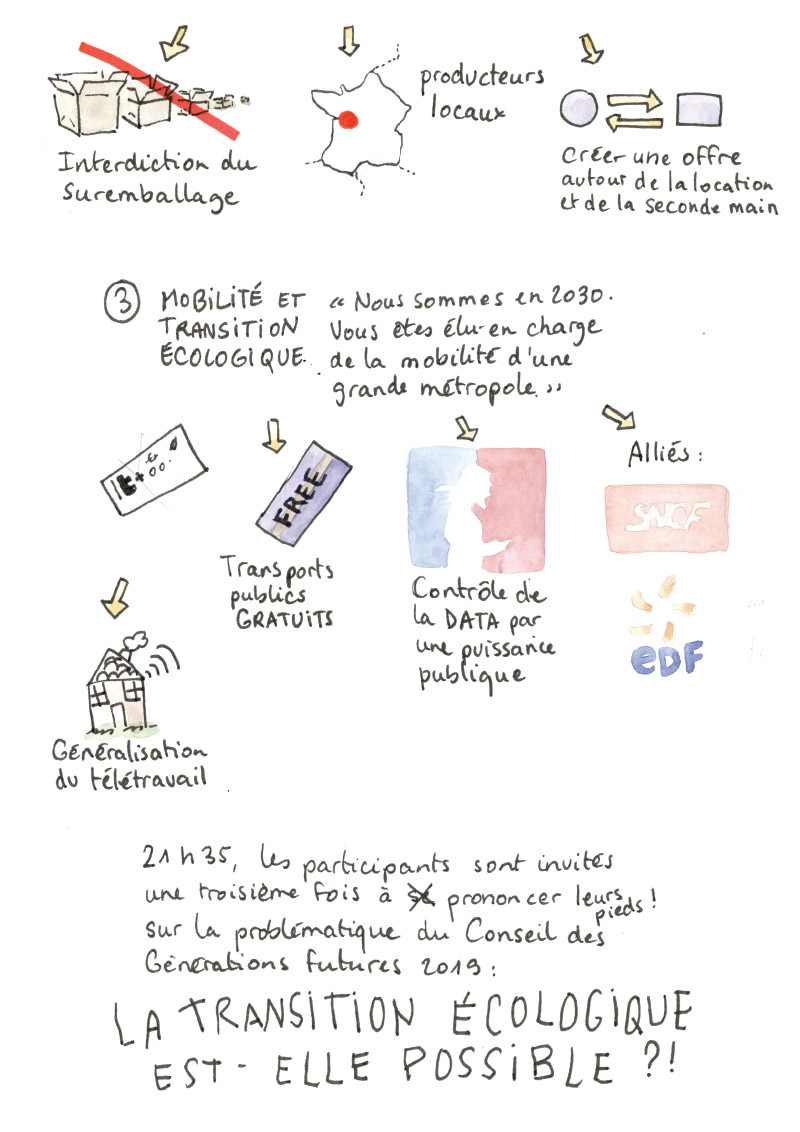 Interdiction du
Suremballage
producteurs
locaux
créer une offre
autour de la location
et de la seconde main
3 MOBILITÉ ET
TRANSITION
ÉCOLOGIQUE.
« Nous sommes en 2030.
Vous êtes élu·en charge
de la mobilité d'une
grande métropole. »
FREE
Transports
publics
GRATUITS
Contrôle de
la DATA par
une puissance
publique
Alliés :
SNCF
eDF
Généralisation
du télétravail
21h35, les participants sont invités
une troisième fois à prononcer leurs pieds !
sur la problématique du Conseil des
Générations futures 2019 :
LA TRANSITION ÉCOLOGIQUE
EST-ELLE POSSIBLE ?!